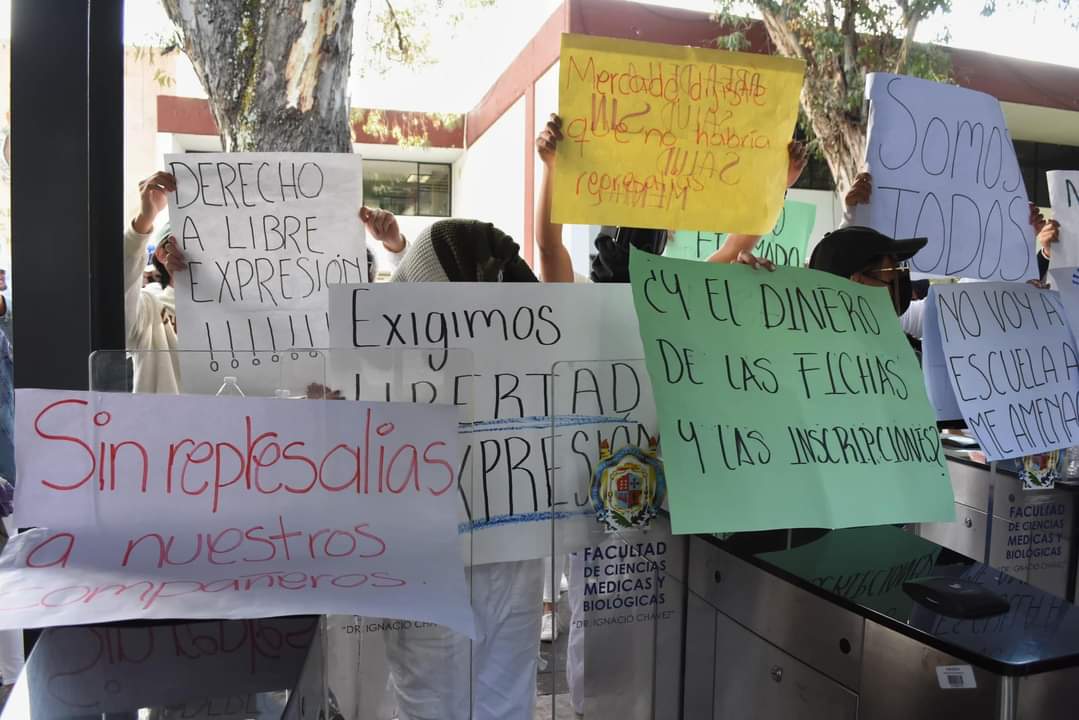 DERECHO
A LIBRE
EXPRESIÓN
¡¡¡¡¡¡¡
Mercado dijiste
que no habría
Somos
TODOS
Exigimos
LIBERTAD
EXPRESIÓN
¿Y EL DINERO
DE LAS FICHAS
Y LAS INSCRIPCIONES?
NO VOY A
ESCUELA A
ME AMENA
Sin represalias
a nuestros
compañeros.
FACULTAD
DE CIENCIAS
MEDICAS Y
BIOLÓGICAS
"DR. IGNACIO CHAVEZ"
FACULTAD
DE CIENCIAS
MEDICAS Y
BIOLÓGICAS
"DR. IGNACIO CHA